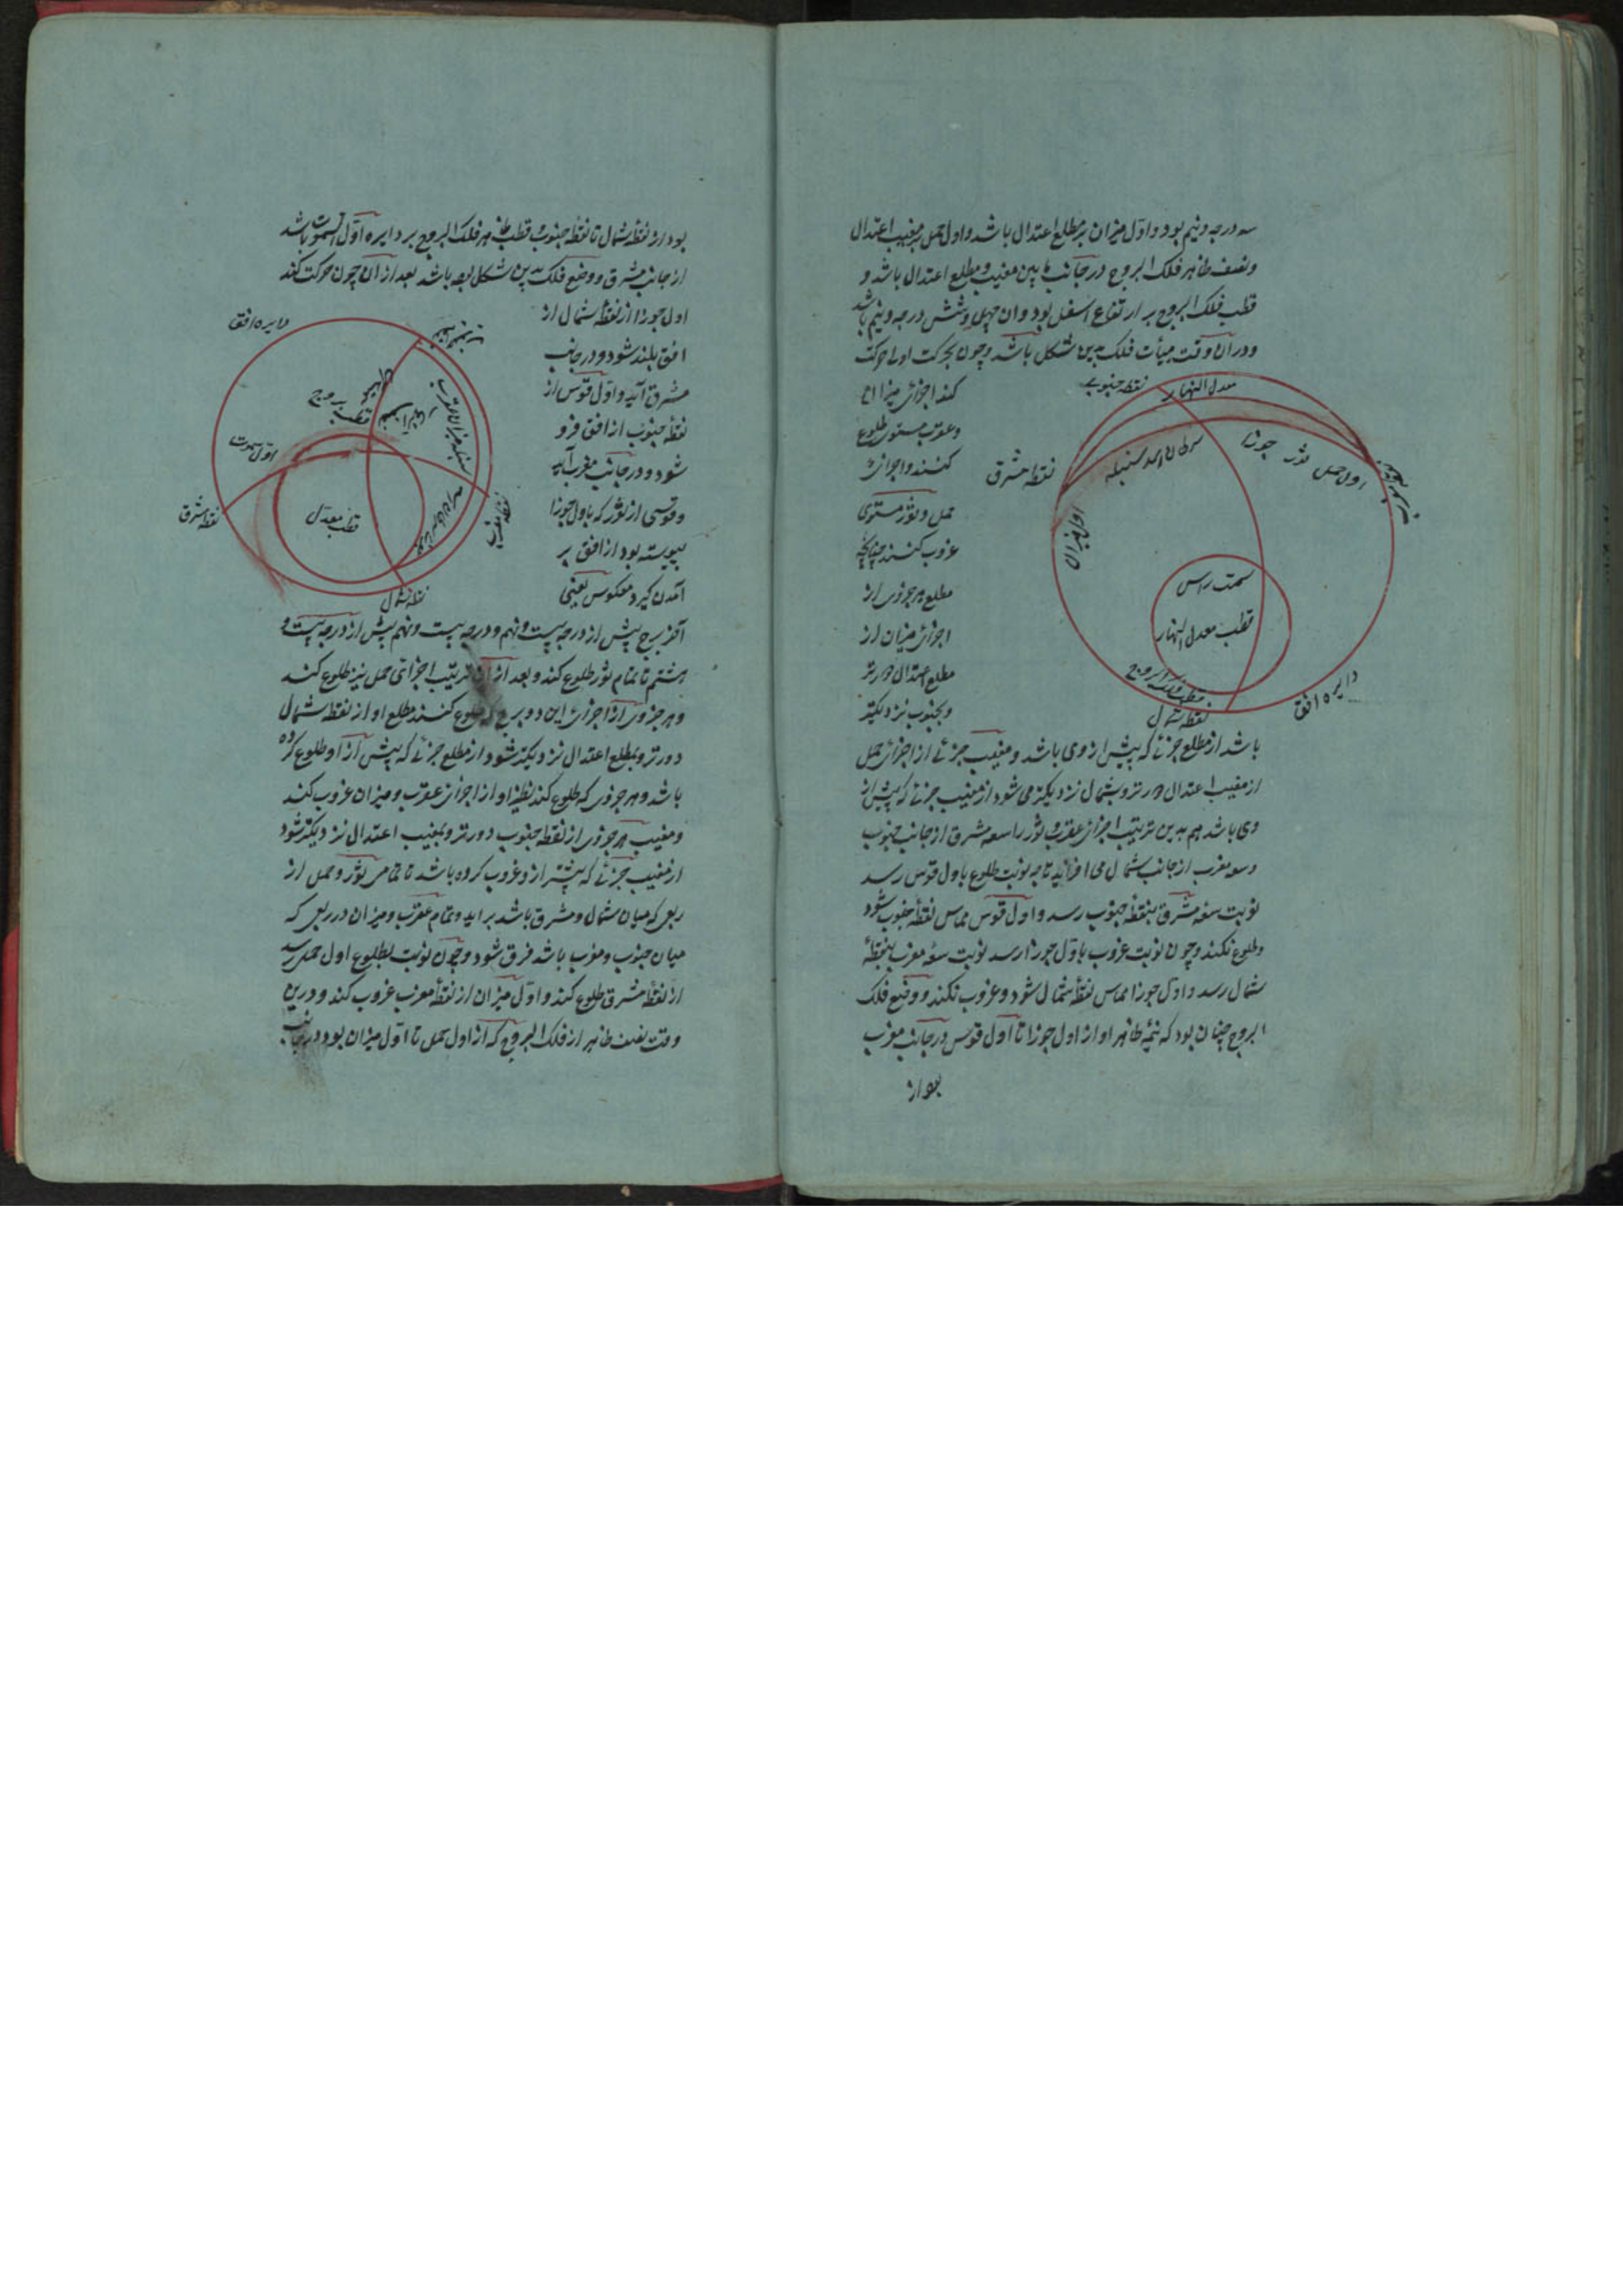 سه درجه ونیم بود واول میزان بر مطلع اعتدال باشد واول حمل بر مغیب اعتدال
ونصف ظاهر فلک البروج در جانب مابین مغیب ومطلع اعتدال باشد و
قطب فلک البروج بر ارتفاع اسفل بود وان چهل وشش درجه ونیم باشد
ودر آن وقت هیأت فلک بدین شکل باشد وچون بحرکت اولی حرکت
معدل النهار
نقطه جنوب
نقطه مشرق
سرطان اسد سنبله
اول حمل ثور جوزا
سمت راس
قطب معدل النهار
قطب فلک البروج
نقطه شمال
دایره افق
کند اجزای میزان
وعقرب مستوی طلوع
کنند واجزای
حمل وثور مستوی
غروب کنند چنانچه
مطلع هر جزوی از
اجزای میزان از
مطلع اعتدال دورتر
وبجنوب نزدیکتر
باشد از مطلع جزئی که پیش از وی باشد ومغیب جزئی از اجزای حمل
از مغیب اعتدال دورتر وبشمال نزدیکتر می شود از مغیب جزئی که پیش از
وی باشد هم بدین ترتیب اجزای عقرب وثور را سعه مشرق از جانب جنوب
وسعه مغرب از جانب شمال می افزاید تا چه نوبت طلوع باول قوس رسد
نوبت سعه مشرق بنقطه جنوب رسد واول قوس مماس نقطه جنوب شود
وطلوع نکند وچون نوبت غروب باول جوزا رسد نوبت سعه مغرب بنقطه
شمال رسد واول جوزا مماس نقطه شمال شود وغروب نکند ووضع فلک
البروج چنان بود که نیمه ظاهر او از اول جوزا تا اول قوس در جانب مغرب
بود از
بود از نقطه شمال تا نقطه جنوب وقطب ظاهر فلک البروج بر دایره اول السموت باشد
از جانب مشرق ووضع فلک بدین شکل باشد بعد از آن چون حرکت کند
دایره افق
قطب بروج
اول سموت
نقطه مشرق
قطب معدل
نقطه شمال
اول جوزا از نقطه شمال از
افق بلند شود ودر جانب
مشرق آید واول قوس از
نقطه جنوب از افق فرو
شود ودر جانب مغرب آید
وقوسی از ثور که باول جوزا
پیوسته بود از افق بر
آمدن گیرد معکوس یعنی
آخر برج پیش از درجه بیست ونهم ودرجه بیست ونهم پیش از درجه بیست و
هشتم تا تمام ثور طلوع کند وبعد از آن ترتیب اجزای حمل نیز طلوع کند
وهر جزوی از اجزای این دو برج که طلوع کنند مطلع او از نقطه شمال
دورتر وبمطلع اعتدال نزدیکتر شود از مطلع جزئی که پیش از او طلوع کرده
باشد وهر جزوی که طلوع کند نظیر او از اجزای عقرب ومیزان غروب کند
ومغیب هر جزوی از نقطه جنوب دورتر وبمغیب اعتدال نزدیکتر شود
از مغیب جزئی که پیشتر از وغروب کرده باشد تا تمامی ثور وحمل از
ربعی که میان شمال ومشرق باشد براید وتمام عقرب ومیزان در ربعی که
میان جنوب ومغرب باشد فرو شود وچون نوبت بطلوع اول حمل رسد
از نقطه مشرق طلوع کند واول میزان از نقطه مغرب غروب کند ودرین
وقت نصف ظاهر از فلک البروج که از اول حمل تا اول میزان بود در جانب